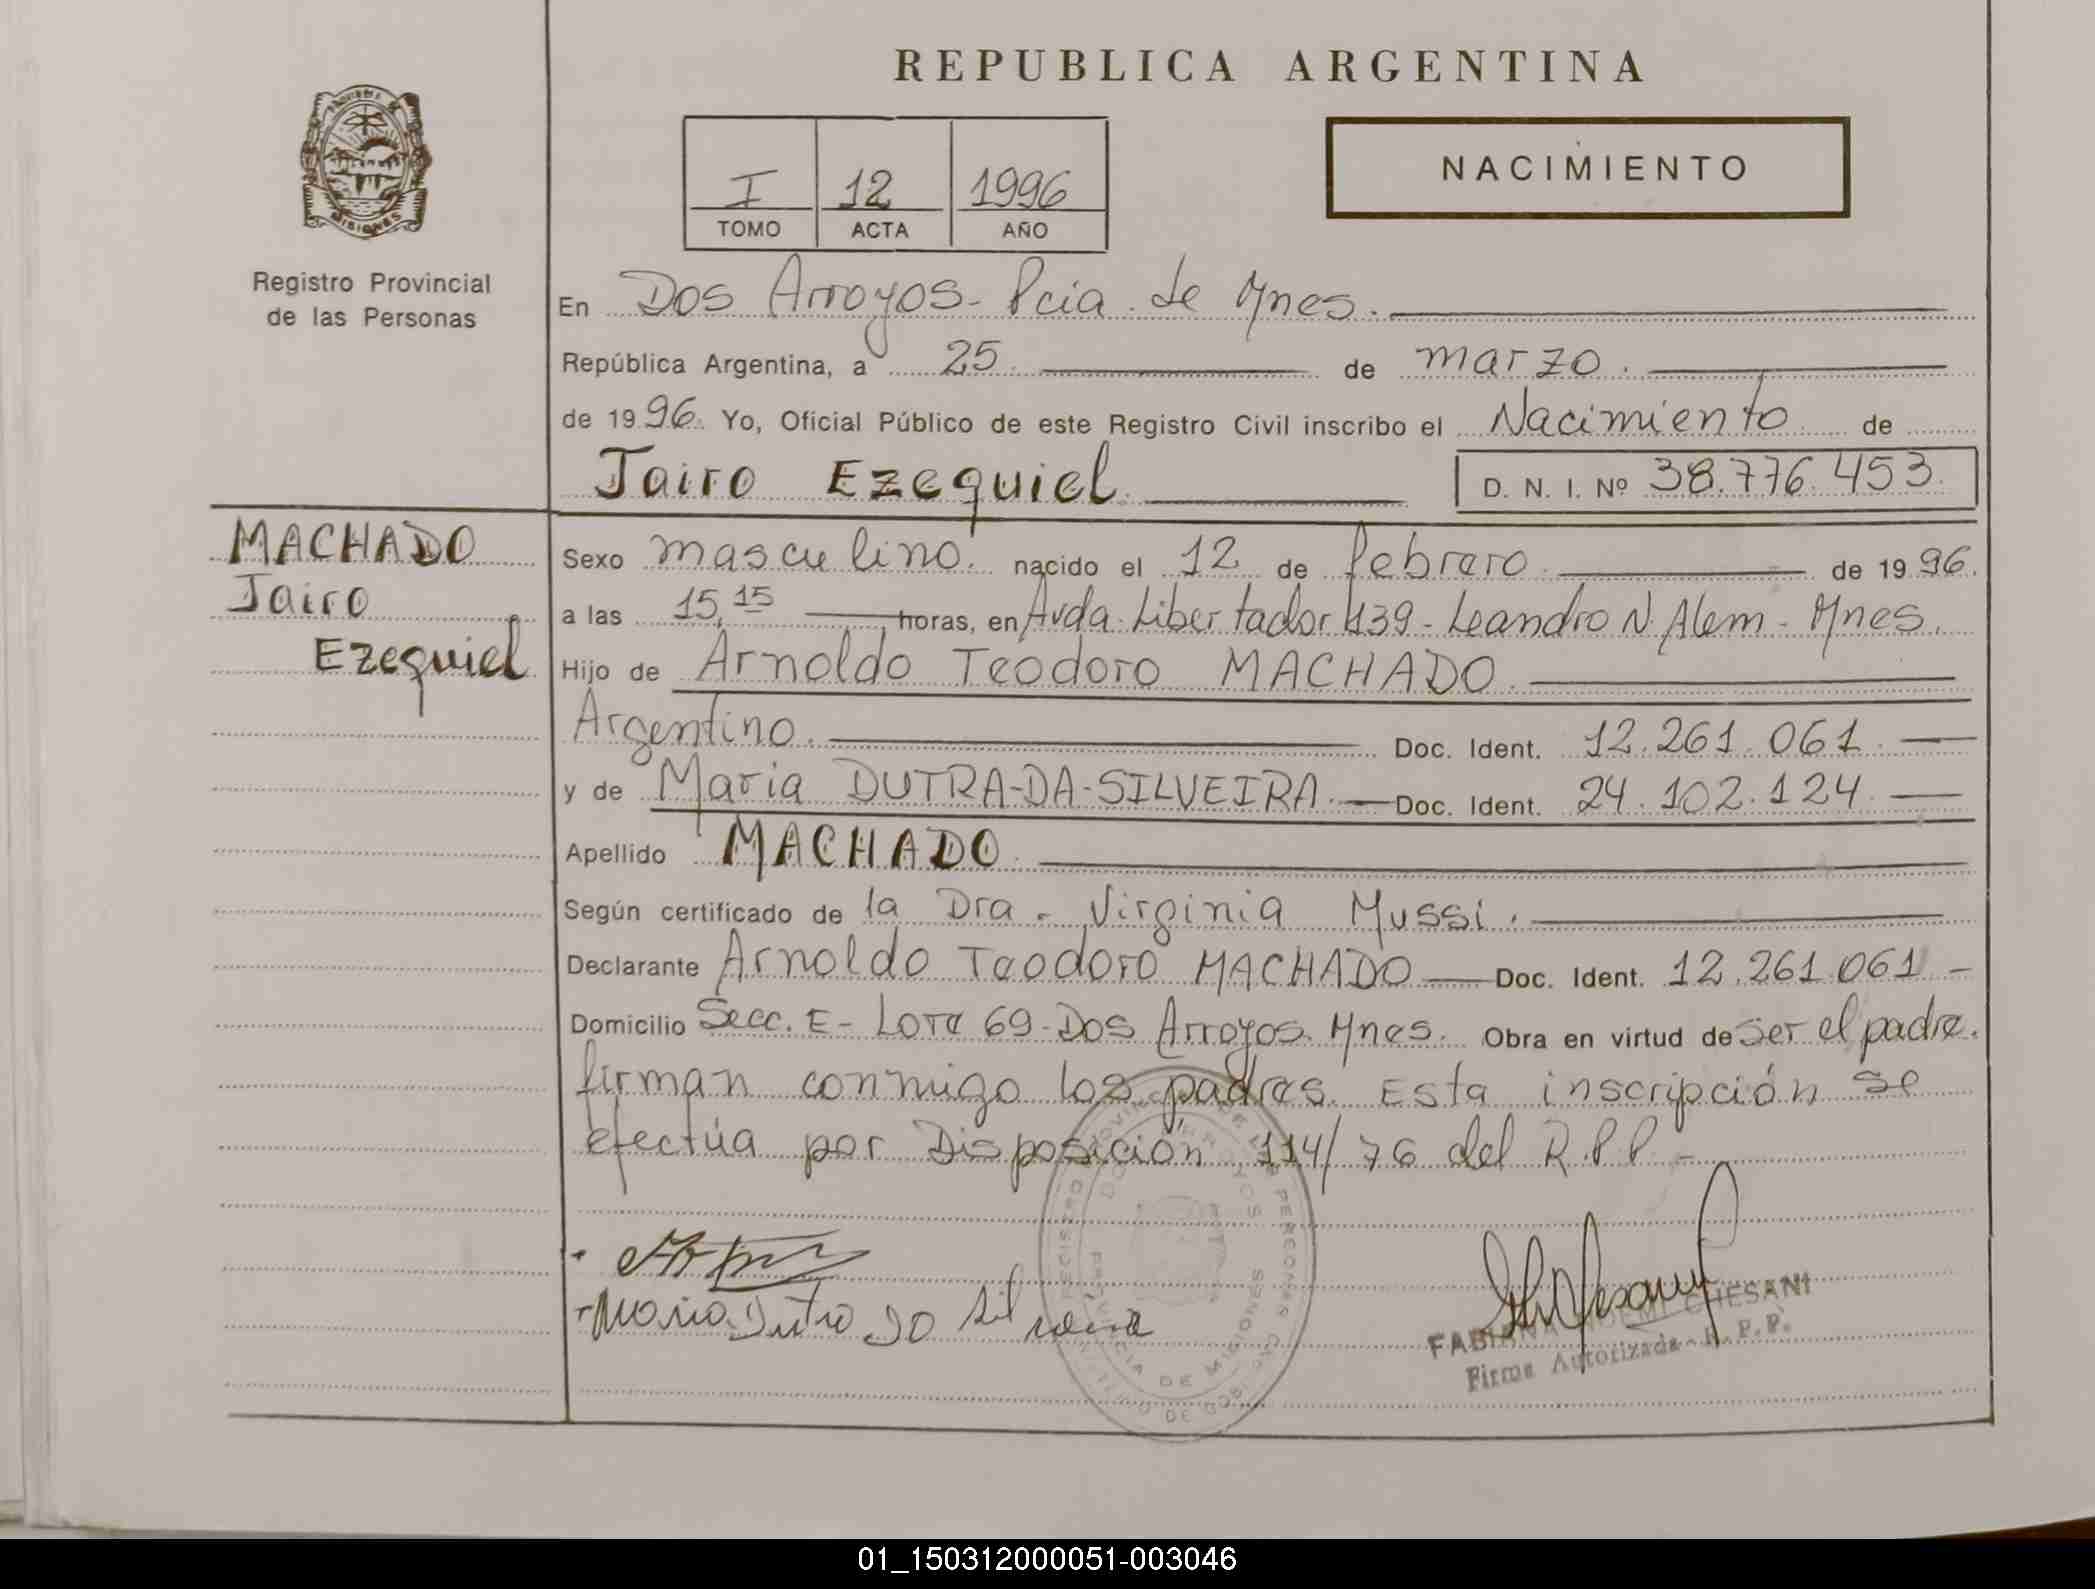 REPUBLICA ARGENTINA
NACIMIENTO
I 12 1996
TOMO ACTA AÑO
MISIONES
Registro Provincial
de las Personas
En Dos Arroyos - Pcia. de Mnes.
República Argentina, a 25 de marzo.
de 1996. Yo, Oficial Público de este Registro Civil inscribo el Nacimiento de
Jairo Ezequiel.
D. N. I. Nº 38.776.453.
MACHADO
Jairo
Ezequiel
Sexo masculino. nacido el 12 de febrero. de 1996.
a las 15,15 horas, en Avda. Libertador 439 - Leandro N. Alem - Mnes.
Hijo de Arnoldo Teodoro MACHADO.
Argentino. Doc. Ident. 12.261.061.
y de Maria DUTRA-DA-SILVEIRA. Doc. Ident. 24.102.124.
Apellido MACHADO.
Según certificado de la Dra. Virginia Mussi.
Declarante Arnoldo Teodoro MACHADO Doc. Ident. 12.261.061 -
Domicilio Secc. E - Lote 69 - Dos Arroyos. Mnes. Obra en virtud de ser el padre.
firman conmigo los padres. Esta inscripción se
efectúa por Disposición 114/76 del R.P.P. -
FABIANA NOEMI CHESANI
Firma Autorizada - R. P. P.
PROVINCIA DE MISIONES
01_150312000051-003046